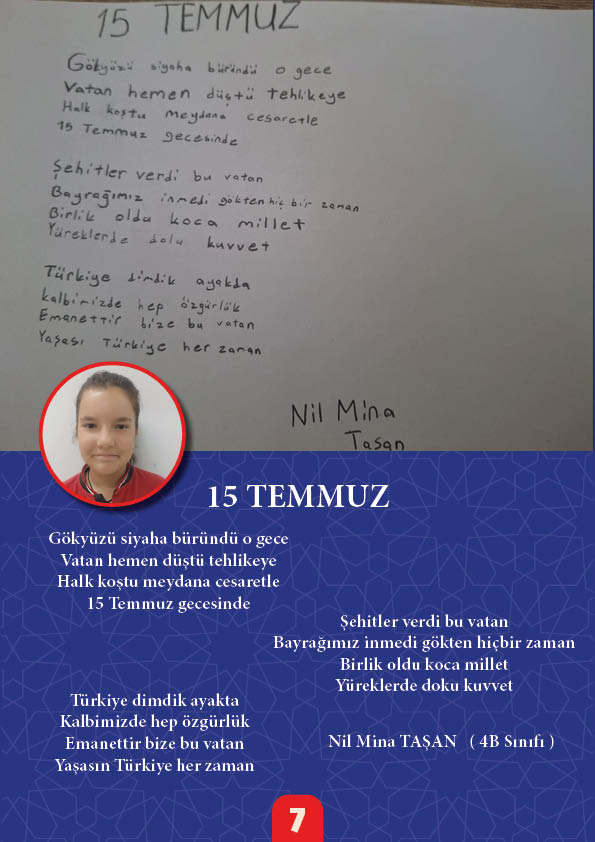 15 TEMMUZ
Gökyüzü siyaha büründü o gece
Vatan hemen düştü tehlikeye
Halk koştu meydana cesaretle
15 Temmuz gecesinde
Şehitler verdi bu vatan
Bayrağımız inmedi gökten hiç bir zaman
Birlik oldu koca millet
Yüreklerde dolu kuvvet
Türkiye dimdik ayakda
kalbimizde hep özgürlük
Emanettir bize bu vatan
Yaşası Türkiye her zaman
Nil Mina
Taşan
15 TEMMUZ
Gökyüzü siyaha büründü o gece
Vatan hemen düştü tehlikeye
Halk koştu meydana cesaretle
15 Temmuz gecesinde
Şehitler verdi bu vatan
Bayrağımız inmedi gökten hiçbir zaman
Birlik oldu koca millet
Yüreklerde doku kuvvet
Türkiye dimdik ayakta
Kalbimizde hep özgürlük
Emanettir bize bu vatan
Yaşasın Türkiye her zaman
Nil Mina TAŞAN ( 4B Sınıfı )
7